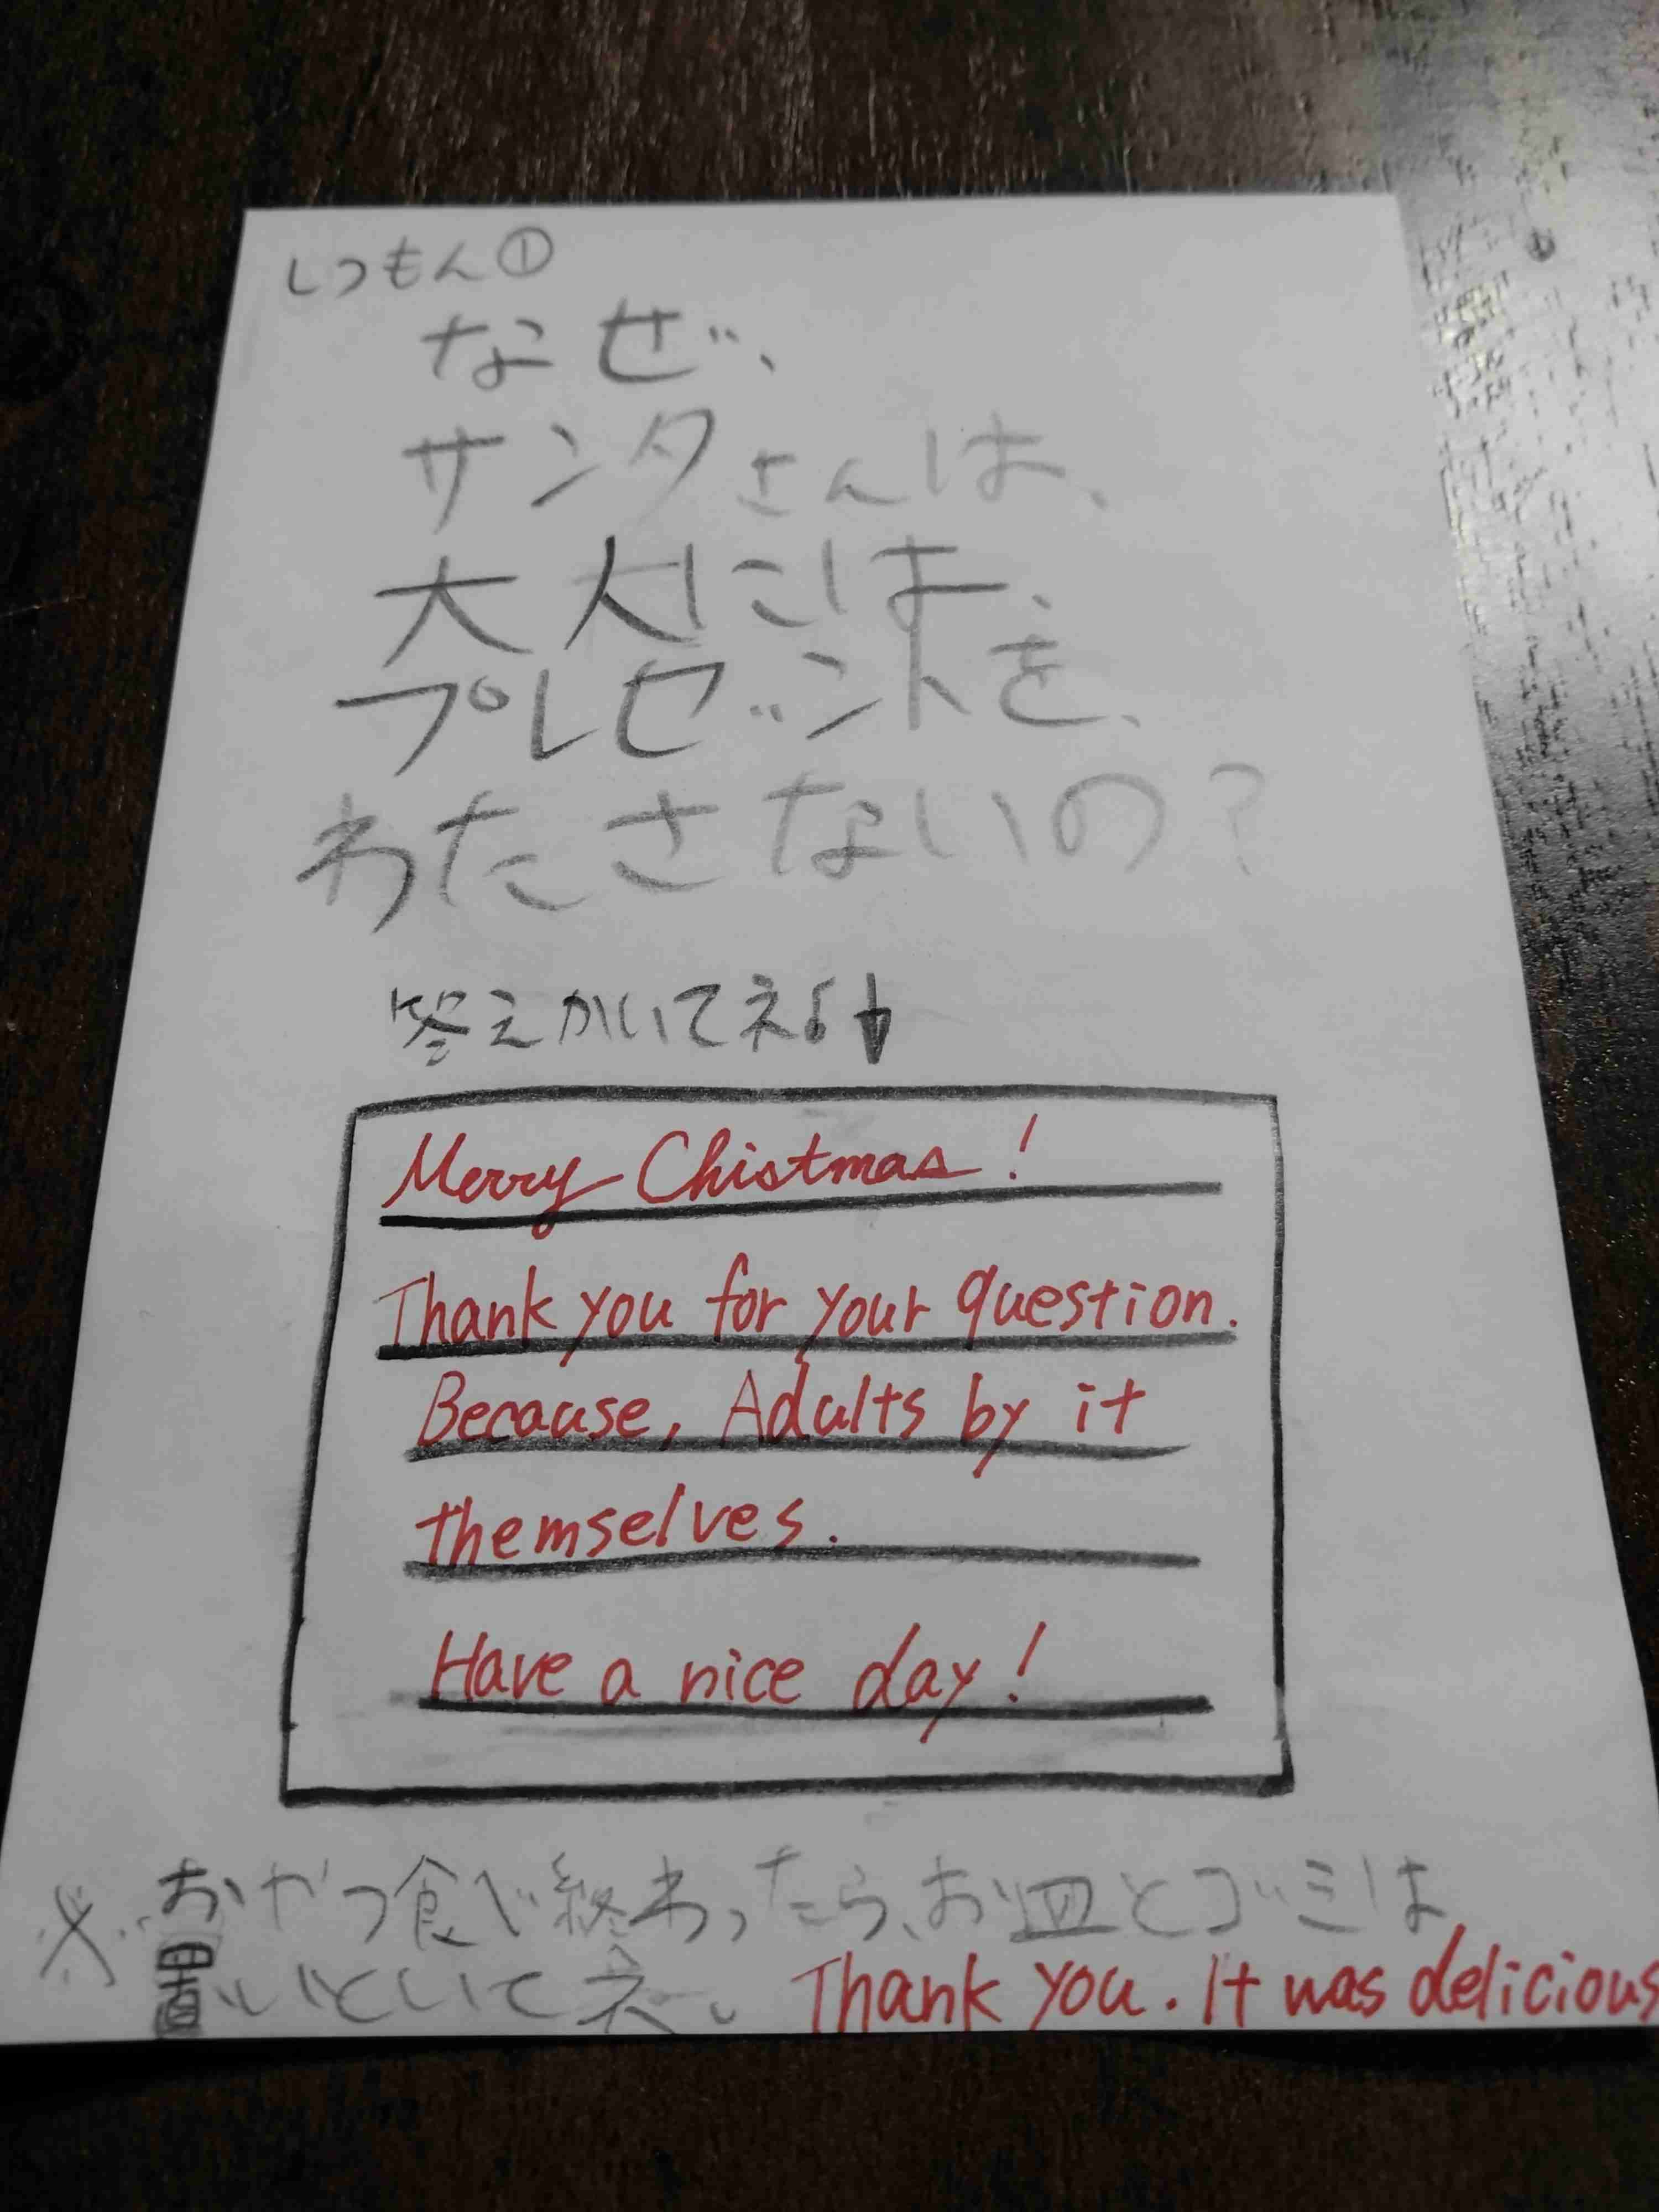 しつもん①
なぜ、
サンタさんは、
大人には、
プレゼントを、
わたさないの?
答えかいてネ♪↓
Merry Chistmas!
Thank you for your question.
Because, Adults by it
themselves.
Have a nice day!
※おやつ食べ終わったら、お皿とゴミは
置いといてネ。 Thank you. It was delicious